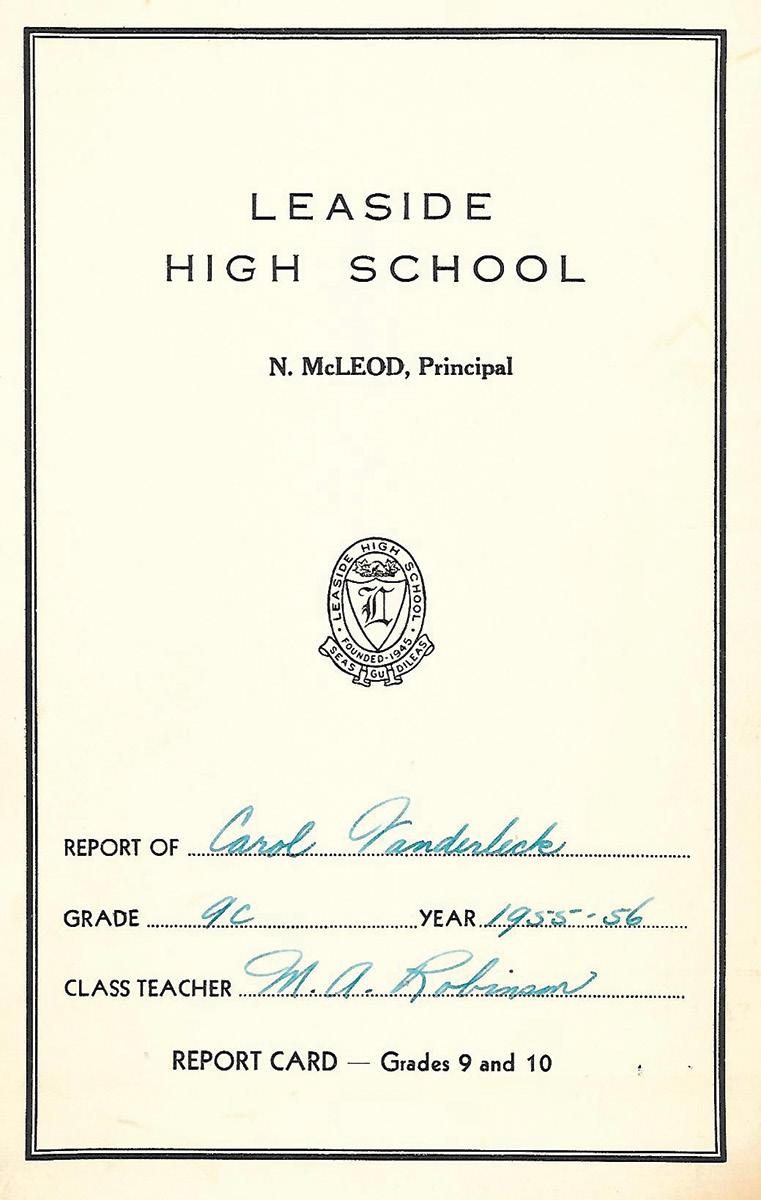 LEASIDE
HIGH SCHOOL
N. McLEOD, Principal
LEASIDE HIGH SCHOOL
L
FOUNDED-1945
SEAS GU DILEAS
REPORT OF Carol Vanderleck
GRADE 9C YEAR 1955-56
CLASS TEACHER M. A. Robinson
REPORT CARD — Grades 9 and 10